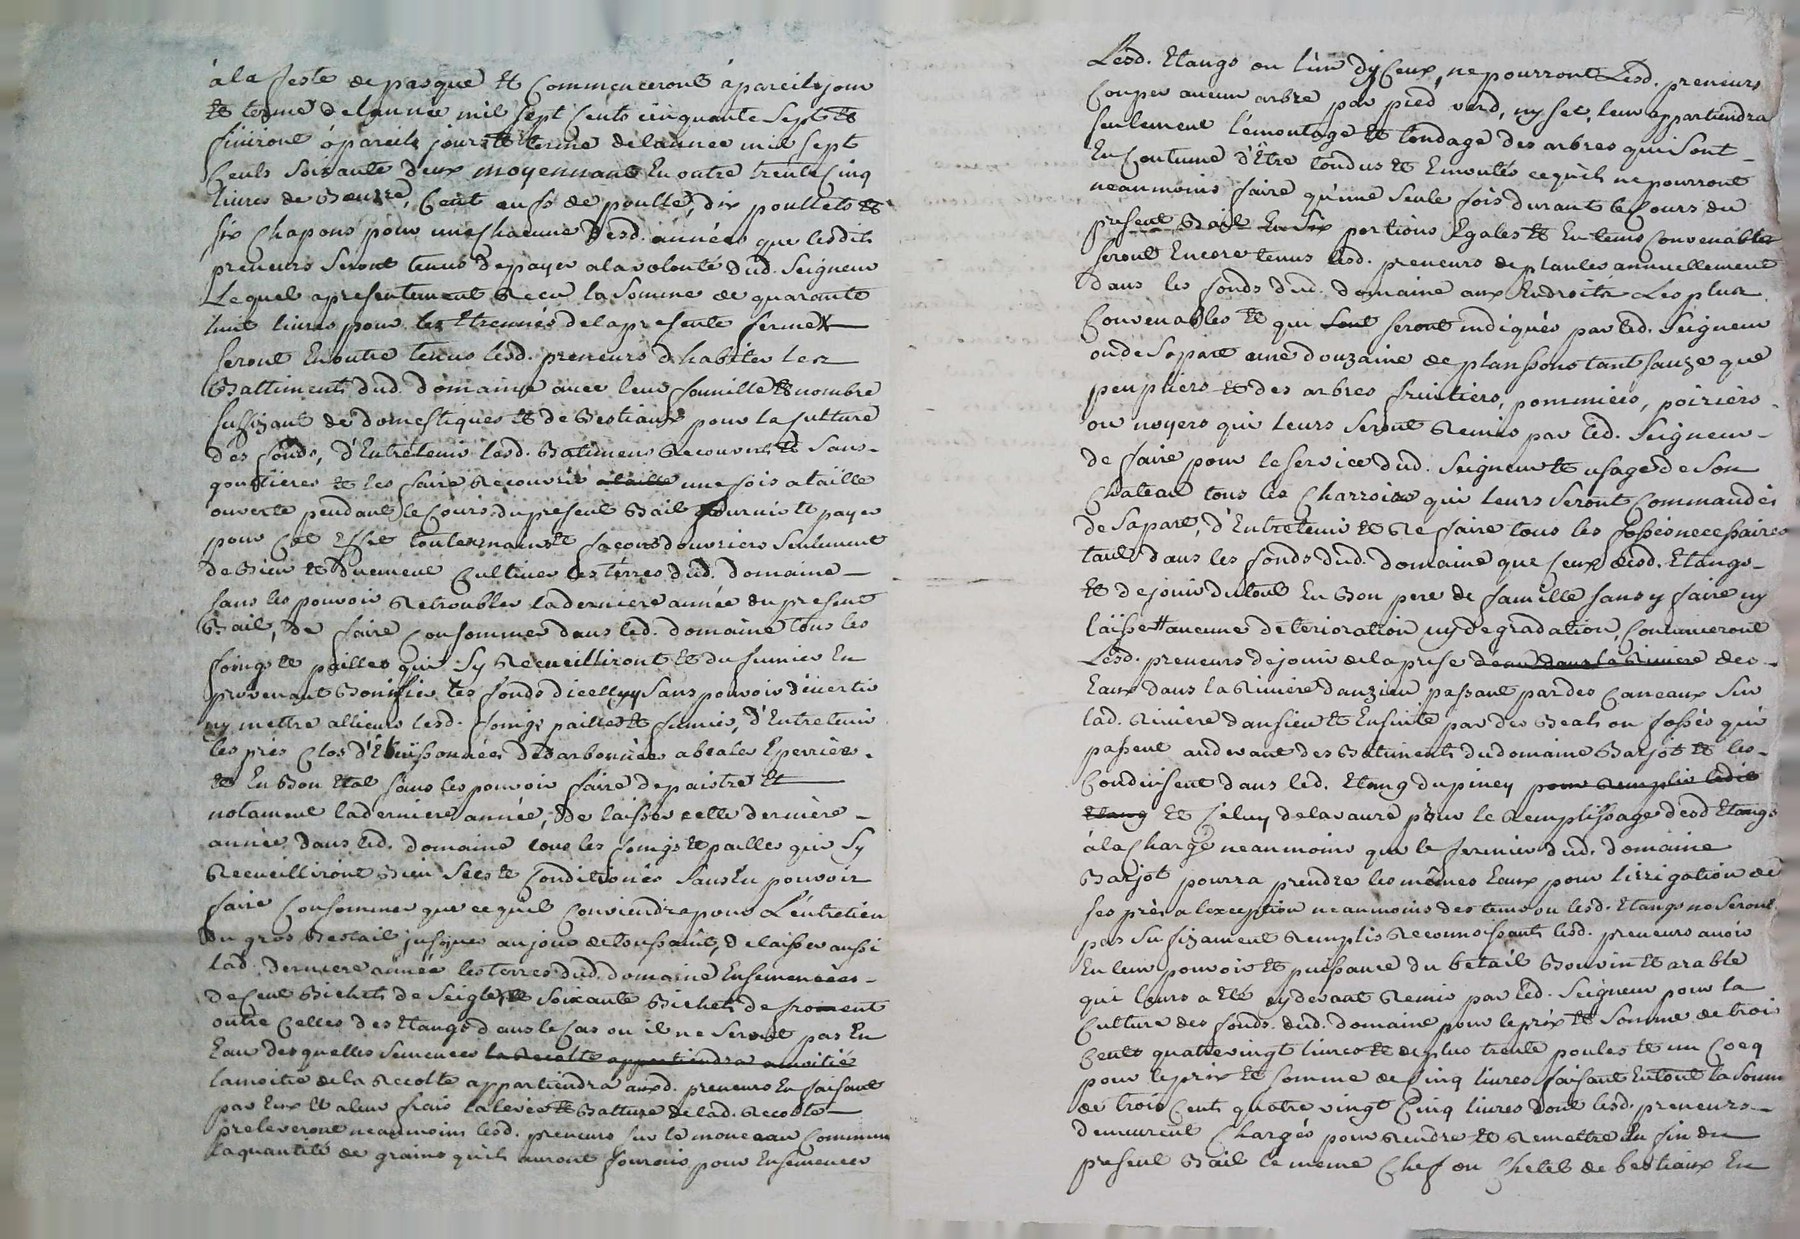 à la feste de pasque et Commenceront à pareils jour
et terme de lannée mil sept Cents cinquante Sept et
finiront à pareils jours et terme de lannee mil sept
Cents Soixante deux moyennant En outre trente Cinq
livres de Beurre, Cent œufs de poulle, dix poullets et
six Chapons pour une Chacune desd. années que lesdits
preneurs Seront tenus de payer a la volonté dud. Seigneur
Lequel apresentement Reçu la Somme de quarante
huit livres pour les Etrennes de la presente ferme
Seront En outre tenus lesd. preneurs d'habiter les
Battiments dud. domaine avec leur famille et nombre
suffizant de domestiques et de Bestiaux pour la Culture
des fonds, d'Entretenir lesd. Batimens Recouverts Sans
gouttieres et les faire Recouvrir a taille une fois a taille
ouverte pendant le Cours du present Bail fournir et payer
pour Cet Effet toutes mains et façons d'ouvriers Seulement
de Bien et duement Cultiver les terres dud. domaine
sans les pouvoir Retroubler la derniere année du present
Bail, de faire Consommer dans led. domaine tous les
foings et pailles qui Sy Recueilliront et du fumier En
provenant Bonifier les fonds dicelluy Sans pouvoir divertir
ny mettre allieurs lesd. foings pailles et fumier, d'Entretenir
les près Clos d'Ebuissonnées desarbonnées
et En Bon Etat Sans les pouvoir faire depaistre Et
notament la derniere année, De laisser cette derniere
année dans led. domaine tous les foings et pailles qui Sy
Recueilliront Bien Secs et Conditionés Sans En pouvoir
faire Consommer que ce quil Conviendra pour L'entretien
du gros Bestail jusques au jour de toussaint, de laisser aussi
lad. derniere année les terres dud. domaine Ensemencées
de Cent Bichets de Seigle, et Soixante Bichets de froment
outre Celles des Etangs dans le Cas ou il ne Seront pas En
Eau des quelles Semences la Recolte appartiendra a moitié
la moitié de la Recolte appartiendra auxd. preneurs En faisant
par Eux et a leur frais la levée et Batture de lad. Recolte
preleveront neanmoins lesd. preneurs sur le monceau Commun
la quantité de grains quils auront fournis pour Ensemencer
Lesd. Etangs ou l'un dy Ceux, ne pourront Lesd. preneurs
Couper aucun arbre par pied verd, ny set, leur appartiendra
seulement l'émontage et tondage des arbres qui Sont
En Coutume d'Être tondus et Emontés ce quils ne pourront
neanmoins faire qu'une Seule fois durant le Cours du
present Bail En Six portions Egales et En tems Convenables
seront Encore tenus lesd. preneurs de planter annuellement
dans les fonds dud. domaine aux Endroits Les plus
Convenables et qui Sont Seront indiqués par led. Seigneur
ou de Sa part une douzaine de planssons tant sauze que
peupliers et des arbres fruitiers, pommiers, poiriers
ou noyers qui leurs Seront Remis par led. Seigneur
de faire pour le Service dud. Seigneur et usage de Son
Chateau tous les Charrois qui leurs Seront Commandés
de Sa part, d'Entretenir et Refaire tous les fossés necessaires
tant dans les fonds dud. domaine que Ceux desd. Etangs
et de jouir du tout En Bon pere de famille Sans y faire ny
laisser aucune deterioration ny degradation, Continueront
Lesd. preneurs de jouir de la prise deau dans la Riviere des
Eaux dans la Riviere danzieu passant par des Caneaux Sur
lad. Riviere dansieu et Ensuite par des Beals ou fossés qui
passent au devant des Batiments du domaine Barjot et les
Conduisent dans led. Etang du piney pour Remplir ledit
Etang et Celuy de la vaure pour le Remplissage desd Etangs
à la Charge neanmoins que le fermier dud. domaine
Barjot pourra prendre les mêmes Eaux pour lirrigation de
ses près a lexception neanmoins des tems ou lesd. Etangs ne Seront
pas Suffizament Remplis Reconnoissants lesd. preneurs avoir
En leur pouvoir et puissance du betail Bouvin et arable
qui leurs a Eté cy devant Remis par led. Seigneur pour la
Culture des fonds dud. domaine pour le prix et Somme de trois
Cents quatre vingt livres et de plus trente poules et un Coeq
pour le prix et Somme de Cinq livres faisant En tout la Somme
de trois Cents quatre vingt Cinq livres dont lesd. preneurs
demeurent Chargés pour Rendre et Remettre En fin du
present Bail le meme Chef ou Chetel de bestiaux En